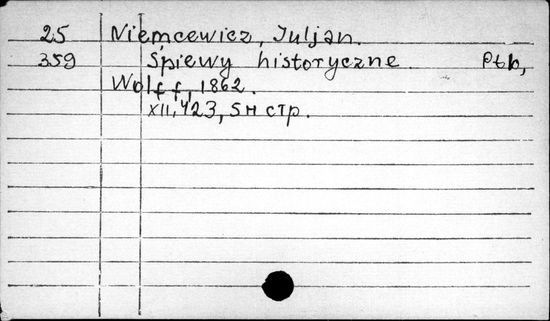 25 Niemcewicz, Juljan.
359 Śpiewy historyczne. Ptb,
Wolff, 1862.
XII, 423, 5 н стр.